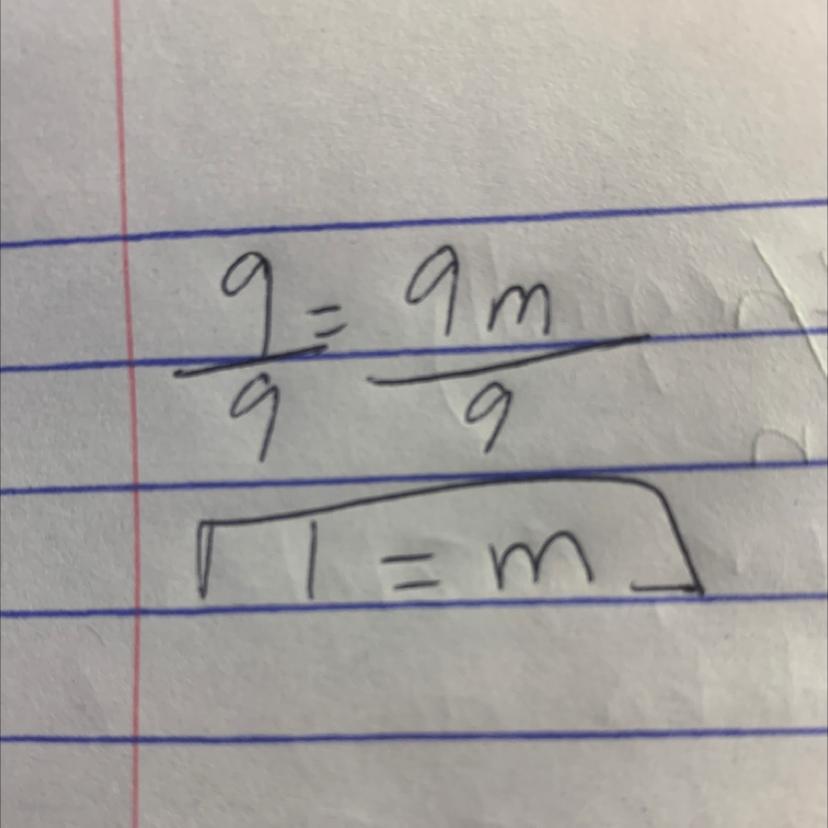 9/9 = 9m/9
1 = m